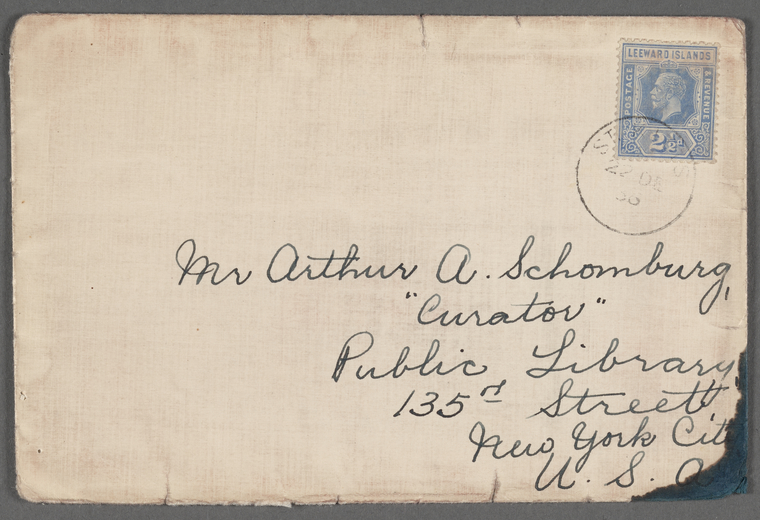 LEEWARD ISLANDS
POSTAGE
& REVENUE
2½d
22 DE
Mr Arthur A. Schomburg,
"Curator"
Public Library
135rd Street,
New York City
U. S. A